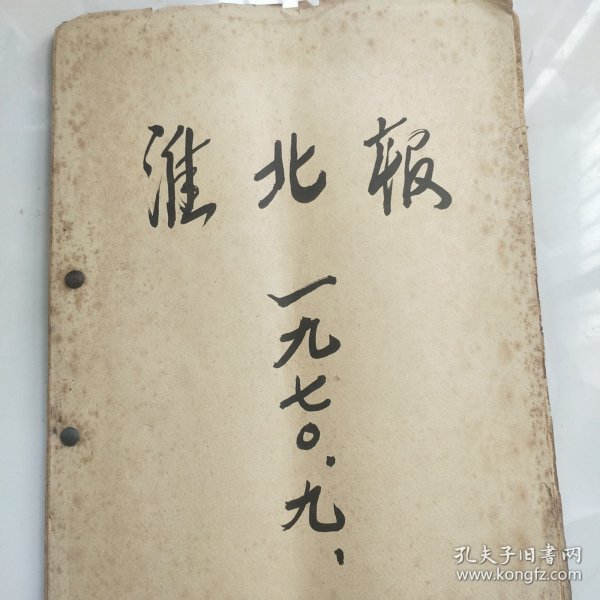 淮北报
一九七〇.九、
孔夫子旧书网
www.kongfz.com